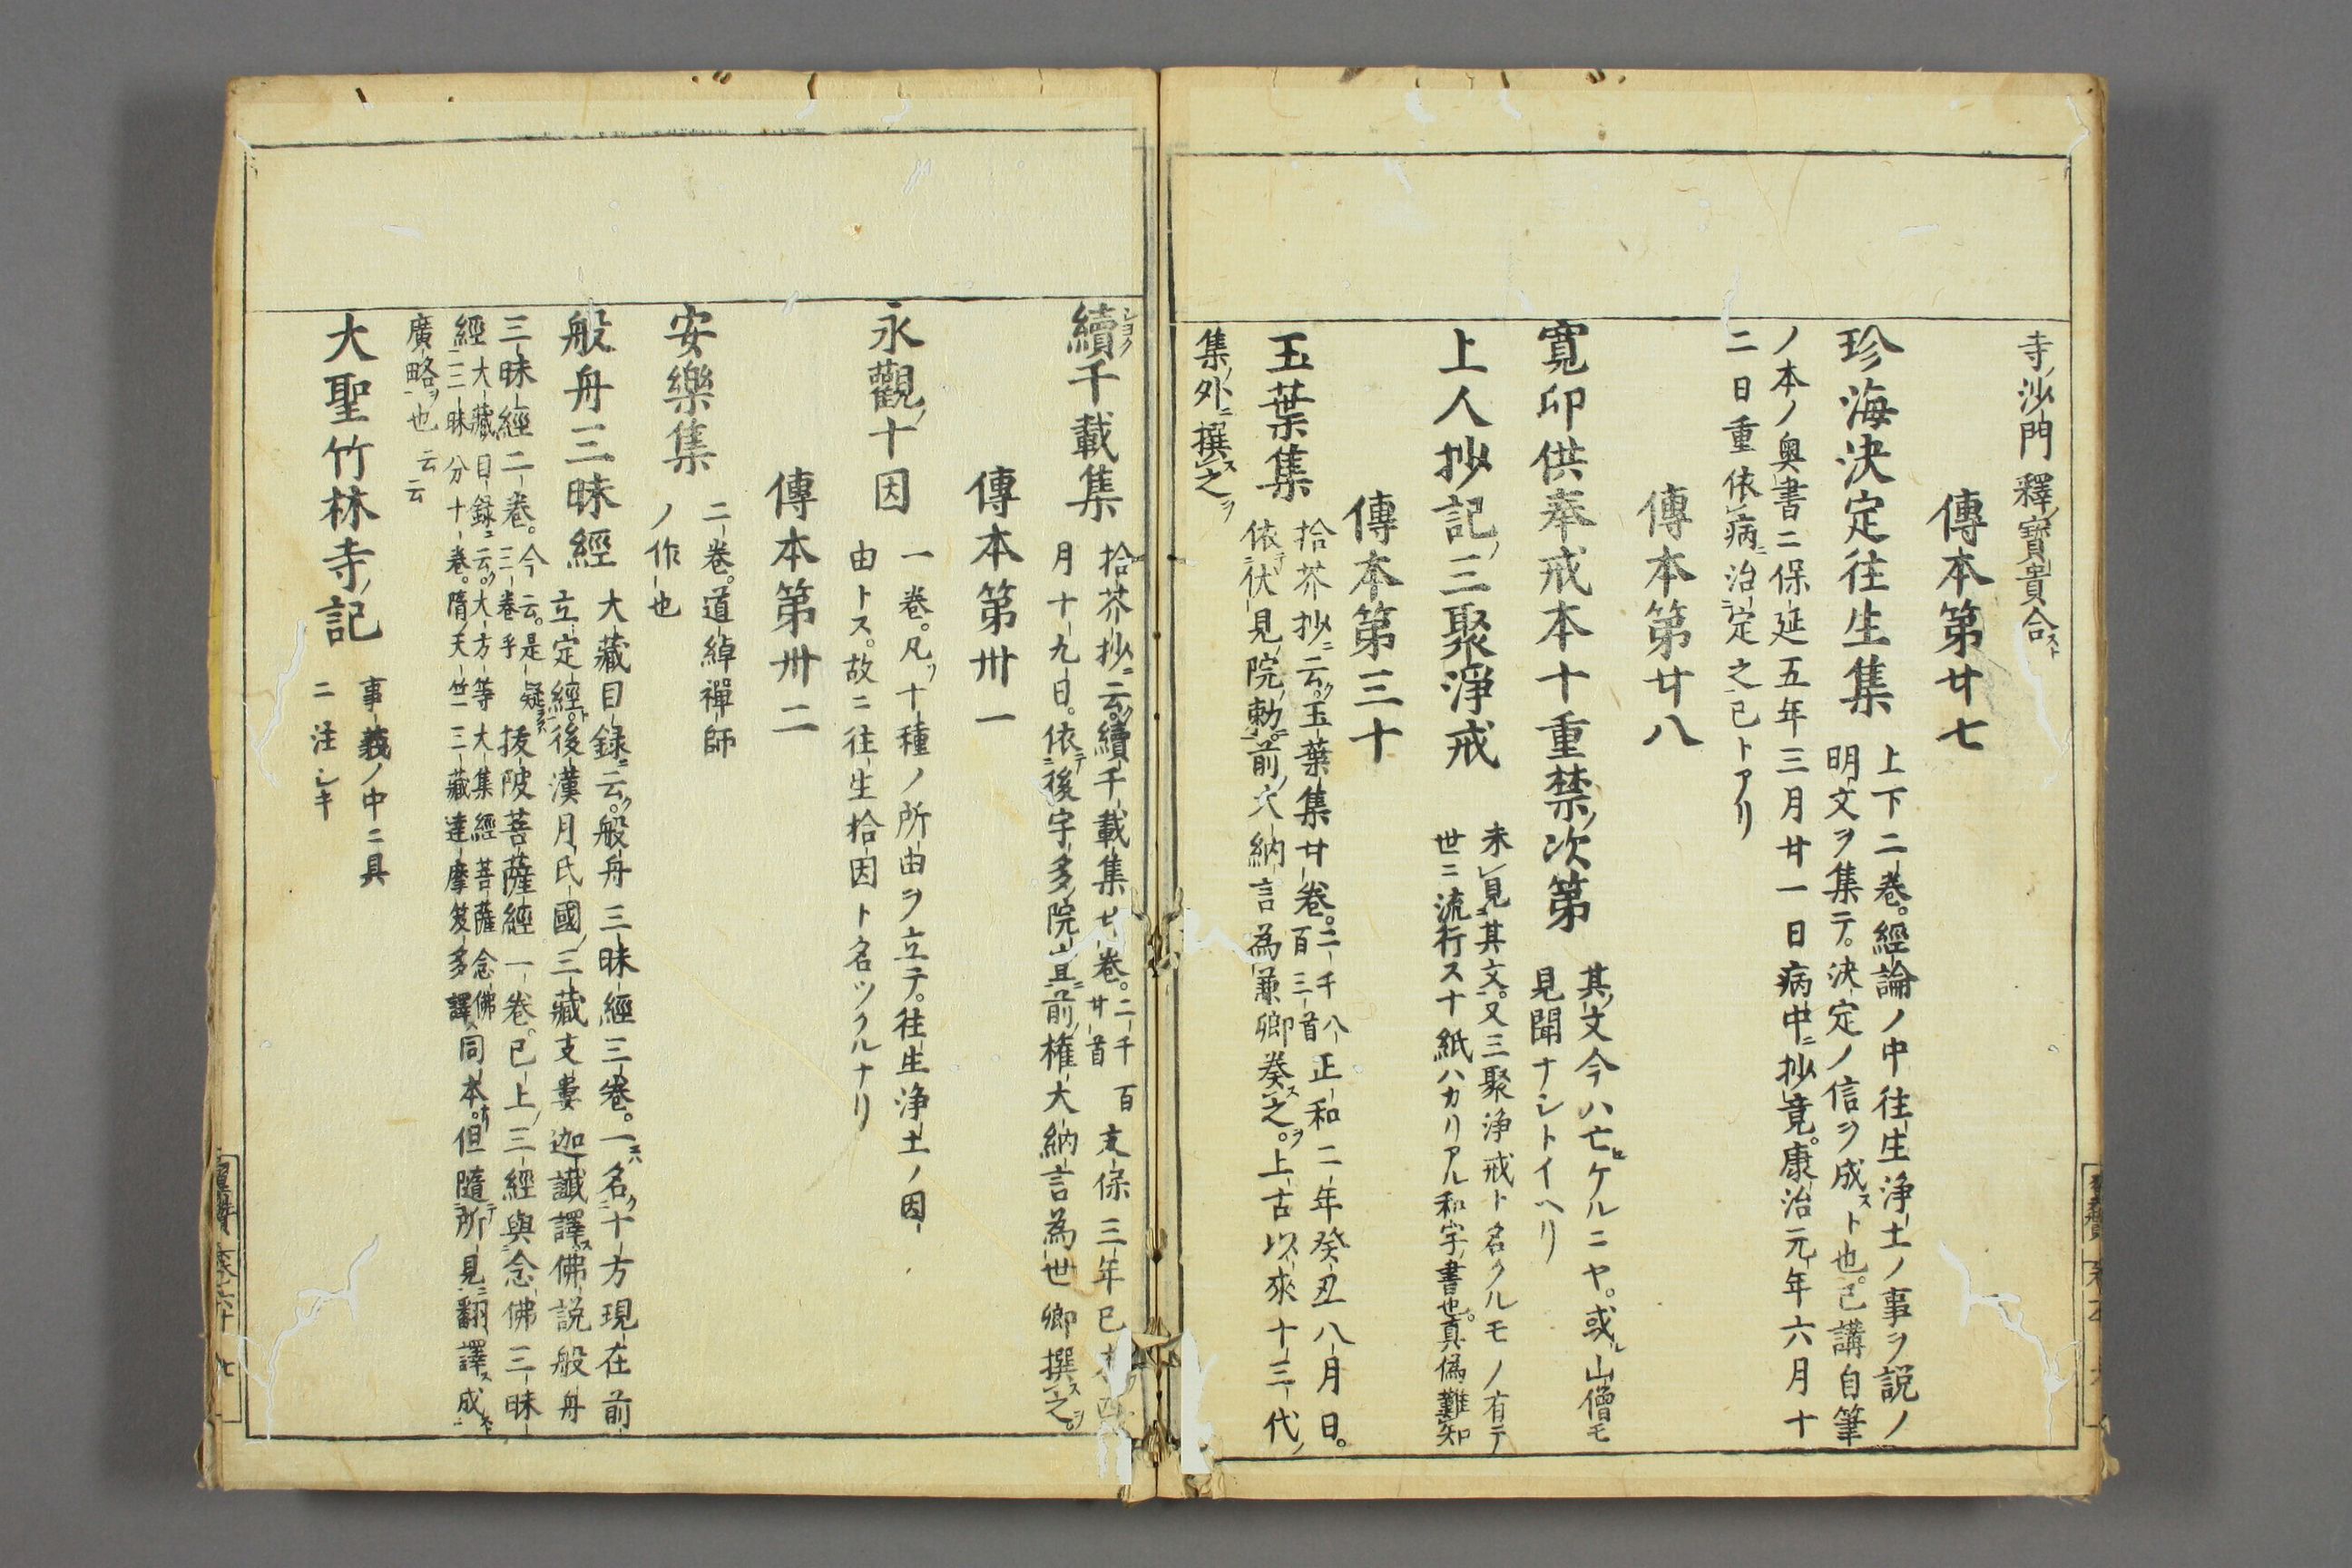 寺ノ沙門釋ノ寶貴合スト
傳本第廿七
珍海決定往生集
上下二卷。經論ノ中往生淨土ノ事ヲ説ノ
明文ヲ集テ。決定ノ信ヲ成スト也。已講自筆
ノ本ノ奥書ニ保延五年三月廿一日病中ニ抄竟。康治元年六月十
二日重依病ニ治定之已トアリ
傳本第廿八
寛印供奉戒本十重禁ノ次第
其ノ文今ハ亡ケルニヤ。或ル山僧モ
見聞ナシトイヘリ
上人抄記ノ三聚淨戒
未見其文。又三聚淨戒ト名クルモノ有テ
世ニ流行ス十紙ハカリアル和字ノ書也。真僞難知
傳本第三十
玉葉集
拾芥抄ニ云ク。玉葉集廿卷。二千八
百三首
正和二年癸丑八月日。
依テ伏見ノ院ノ勅ニ。前ノ大納言為兼卿奏ス之ヲ。上古以來十三代ノ
集ノ外ニ撰ス之ヲ
續千載集
拾芥抄ニ云ク。續千載集廿卷。二千百
廿首
文保三年已
月十九日。依テ後宇多ノ院宣ニ前ノ権大納言為世卿撰ス之ヲ。
傳本第卅一
永觀ノ十因
一卷。凡ソ十種ノ所由ヲ立テ。往生淨土ノ因
由トス。故ニ往生拾因ト名ツクルナリ
傳本第卅二
安樂集
二卷。道綽禪師
ノ作也
般舟三昧經
大藏目録ニ云ク。般舟三昧經三卷。一ニハ名ク十方現在前
立定經ト。後漢月氏國ノ三藏支婁迦讖譯ス佛説般舟
三昧經二卷。今云。是疑
三卷乎
拔陂菩薩經一卷。已上ノ三經與念佛三昧
經大藏目録ニ云ク。大方等大集經菩薩念佛
三昧分十卷。隋天竺三藏達摩笈多譯
同本。但隨テ所見ニ翻譯ス成
廣略ヲ也云云
大聖竹林寺ノ記
事義ノ中ニ具
ニ注シキ